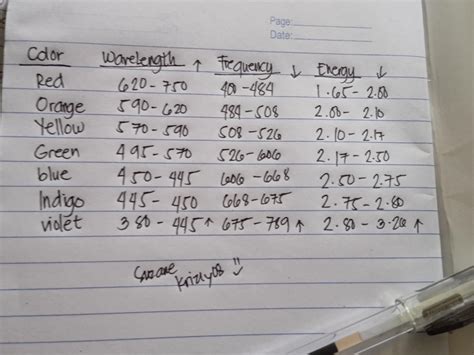 Page:
Date:
Color Wavelength ↑ Frequency ↓ Energy ↓
Red 620 - 750 400 - 484 1.65 - 2.00
Orange 590 - 620 484 - 508 2.00 - 2.10
Yellow 570 - 590 508 - 526 2.10 - 2.17
Green 495 - 570 526 - 606 2.17 - 2.50
blue 450 - 445 606 - 668 2.50 - 2.75
Indigo 445 - 450 668 - 675 2.75 - 2.80
violet 380 - 445 ↑ 675 - 789 ↑ 2.80 - 3.26 ↑